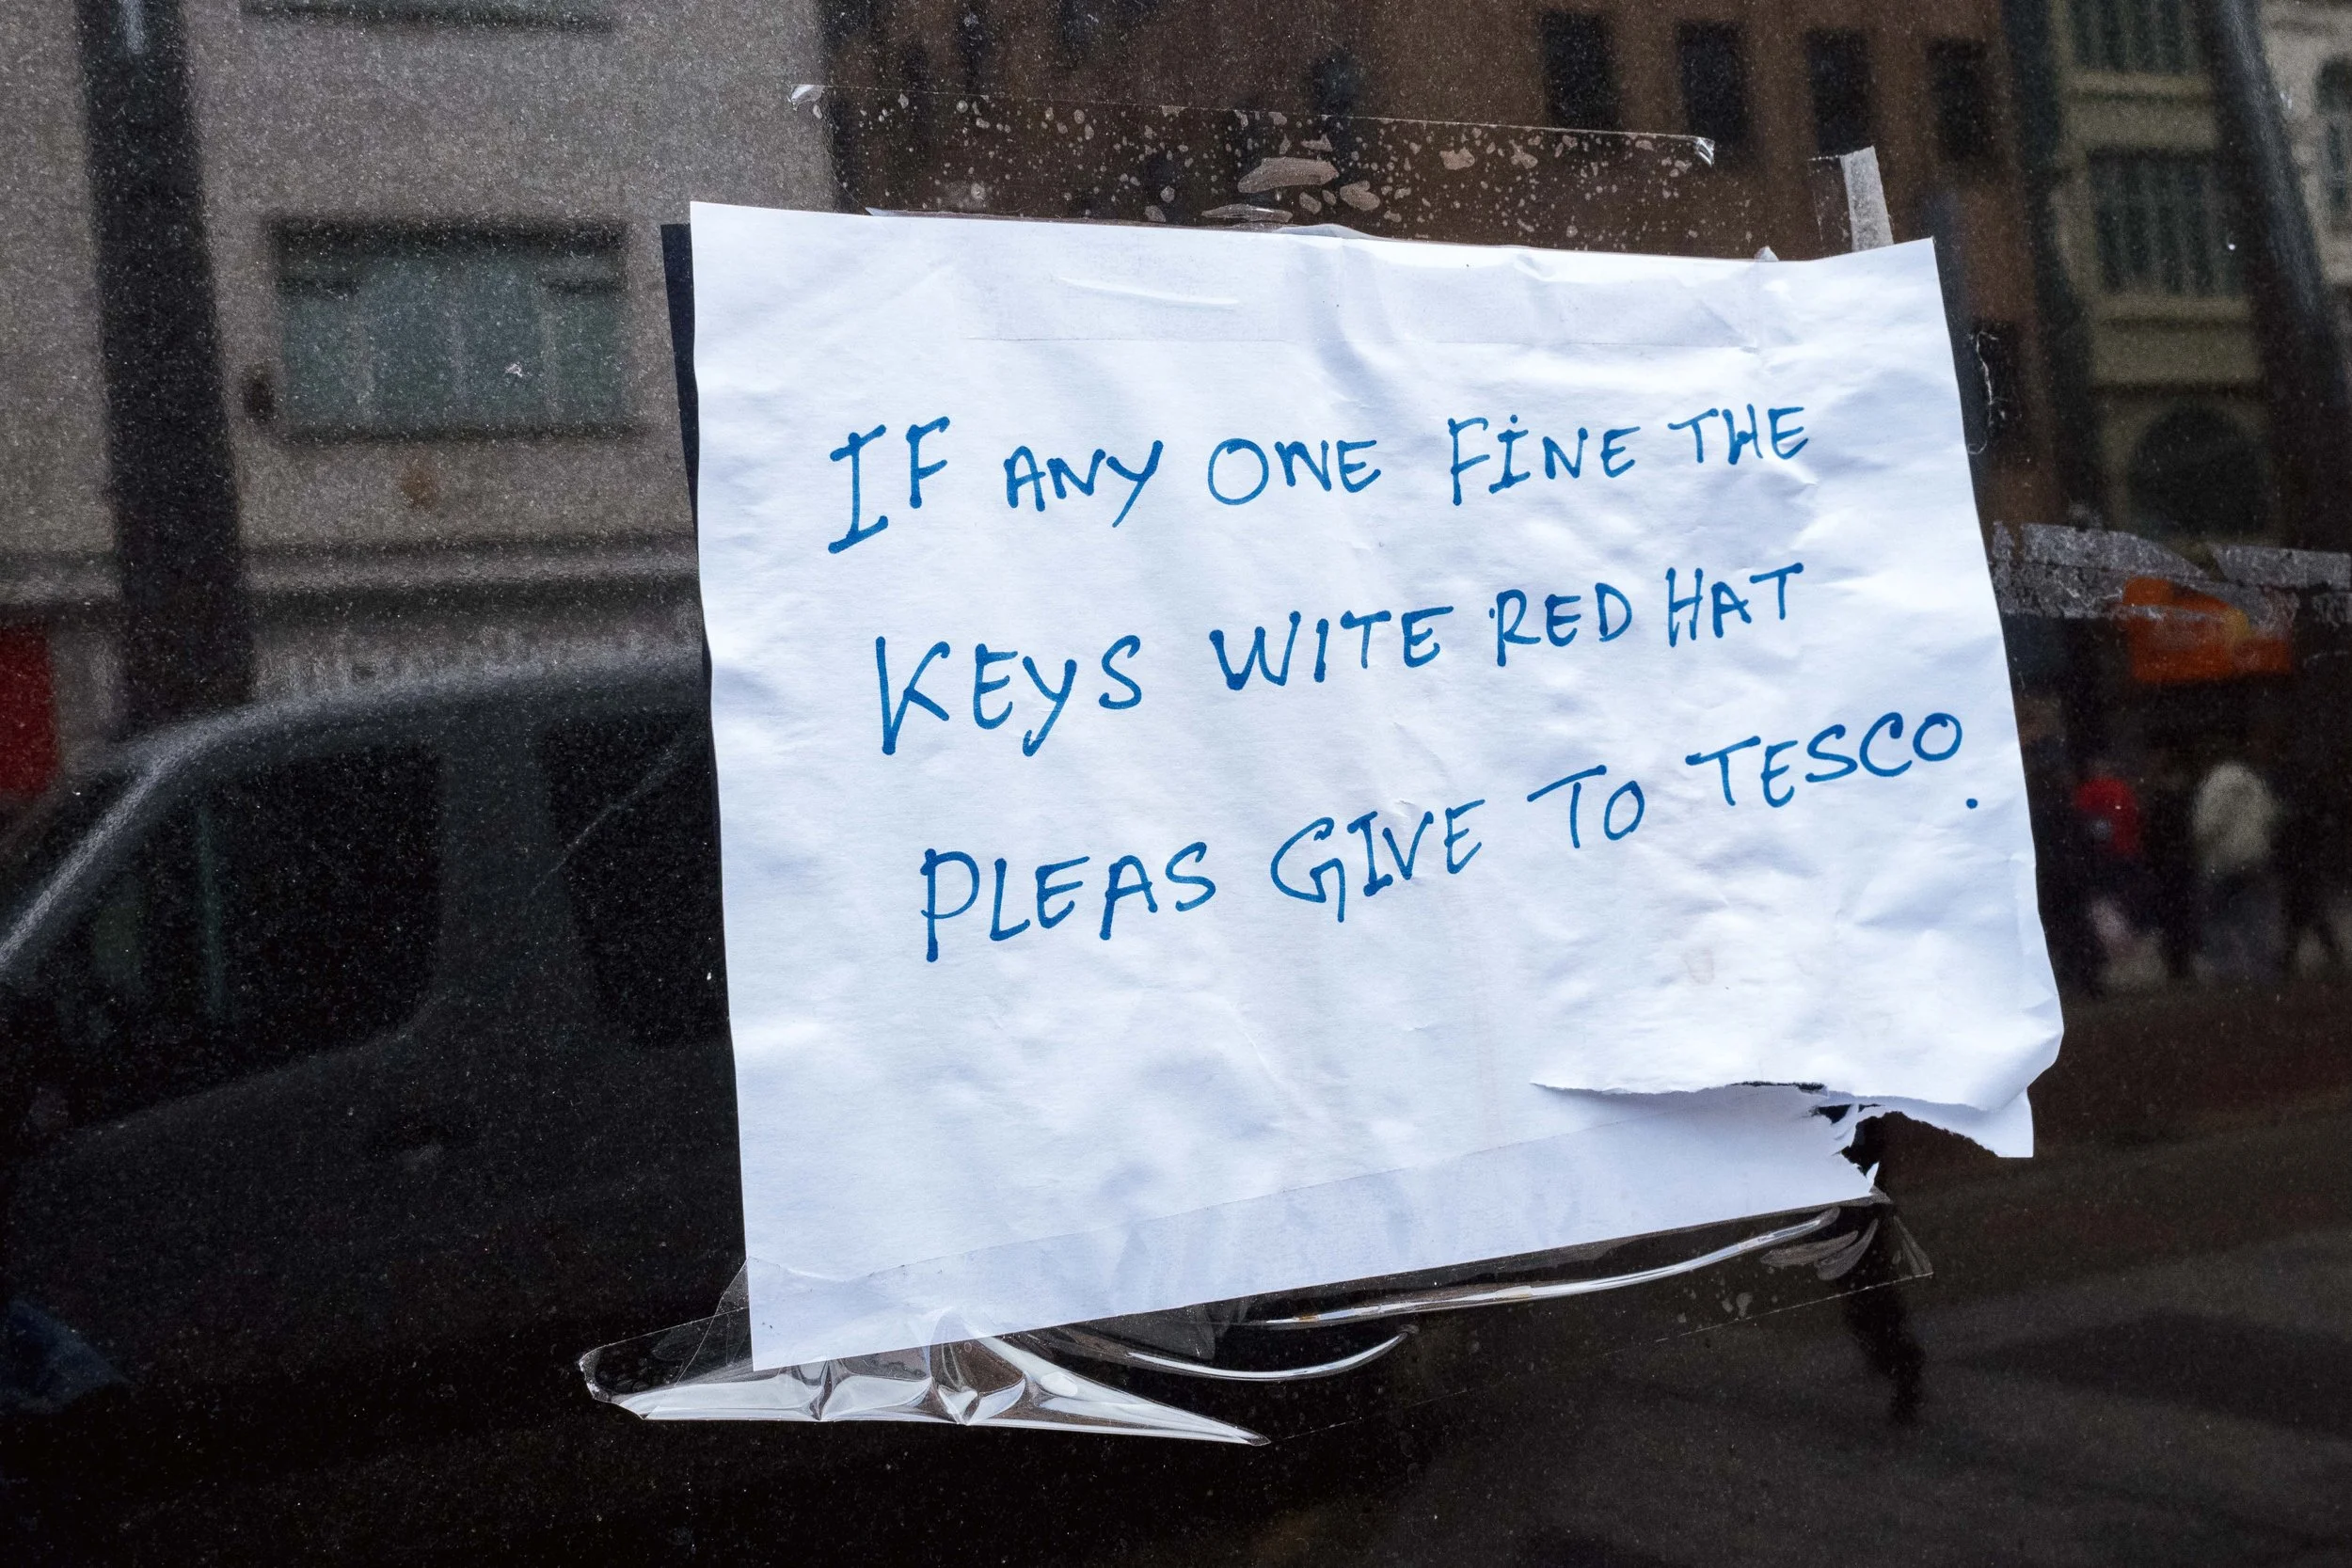 IF ANY ONE FINE THE
KEYS WITE RED HAT
PLEAS GIVE TO TESCO.